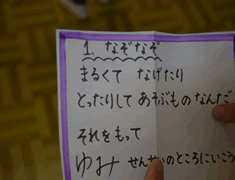 1. なぞなぞ
まるくて なげたり
とったりして あそぶものなんだ
それをもって
ゆみ せんせいのところにいこう